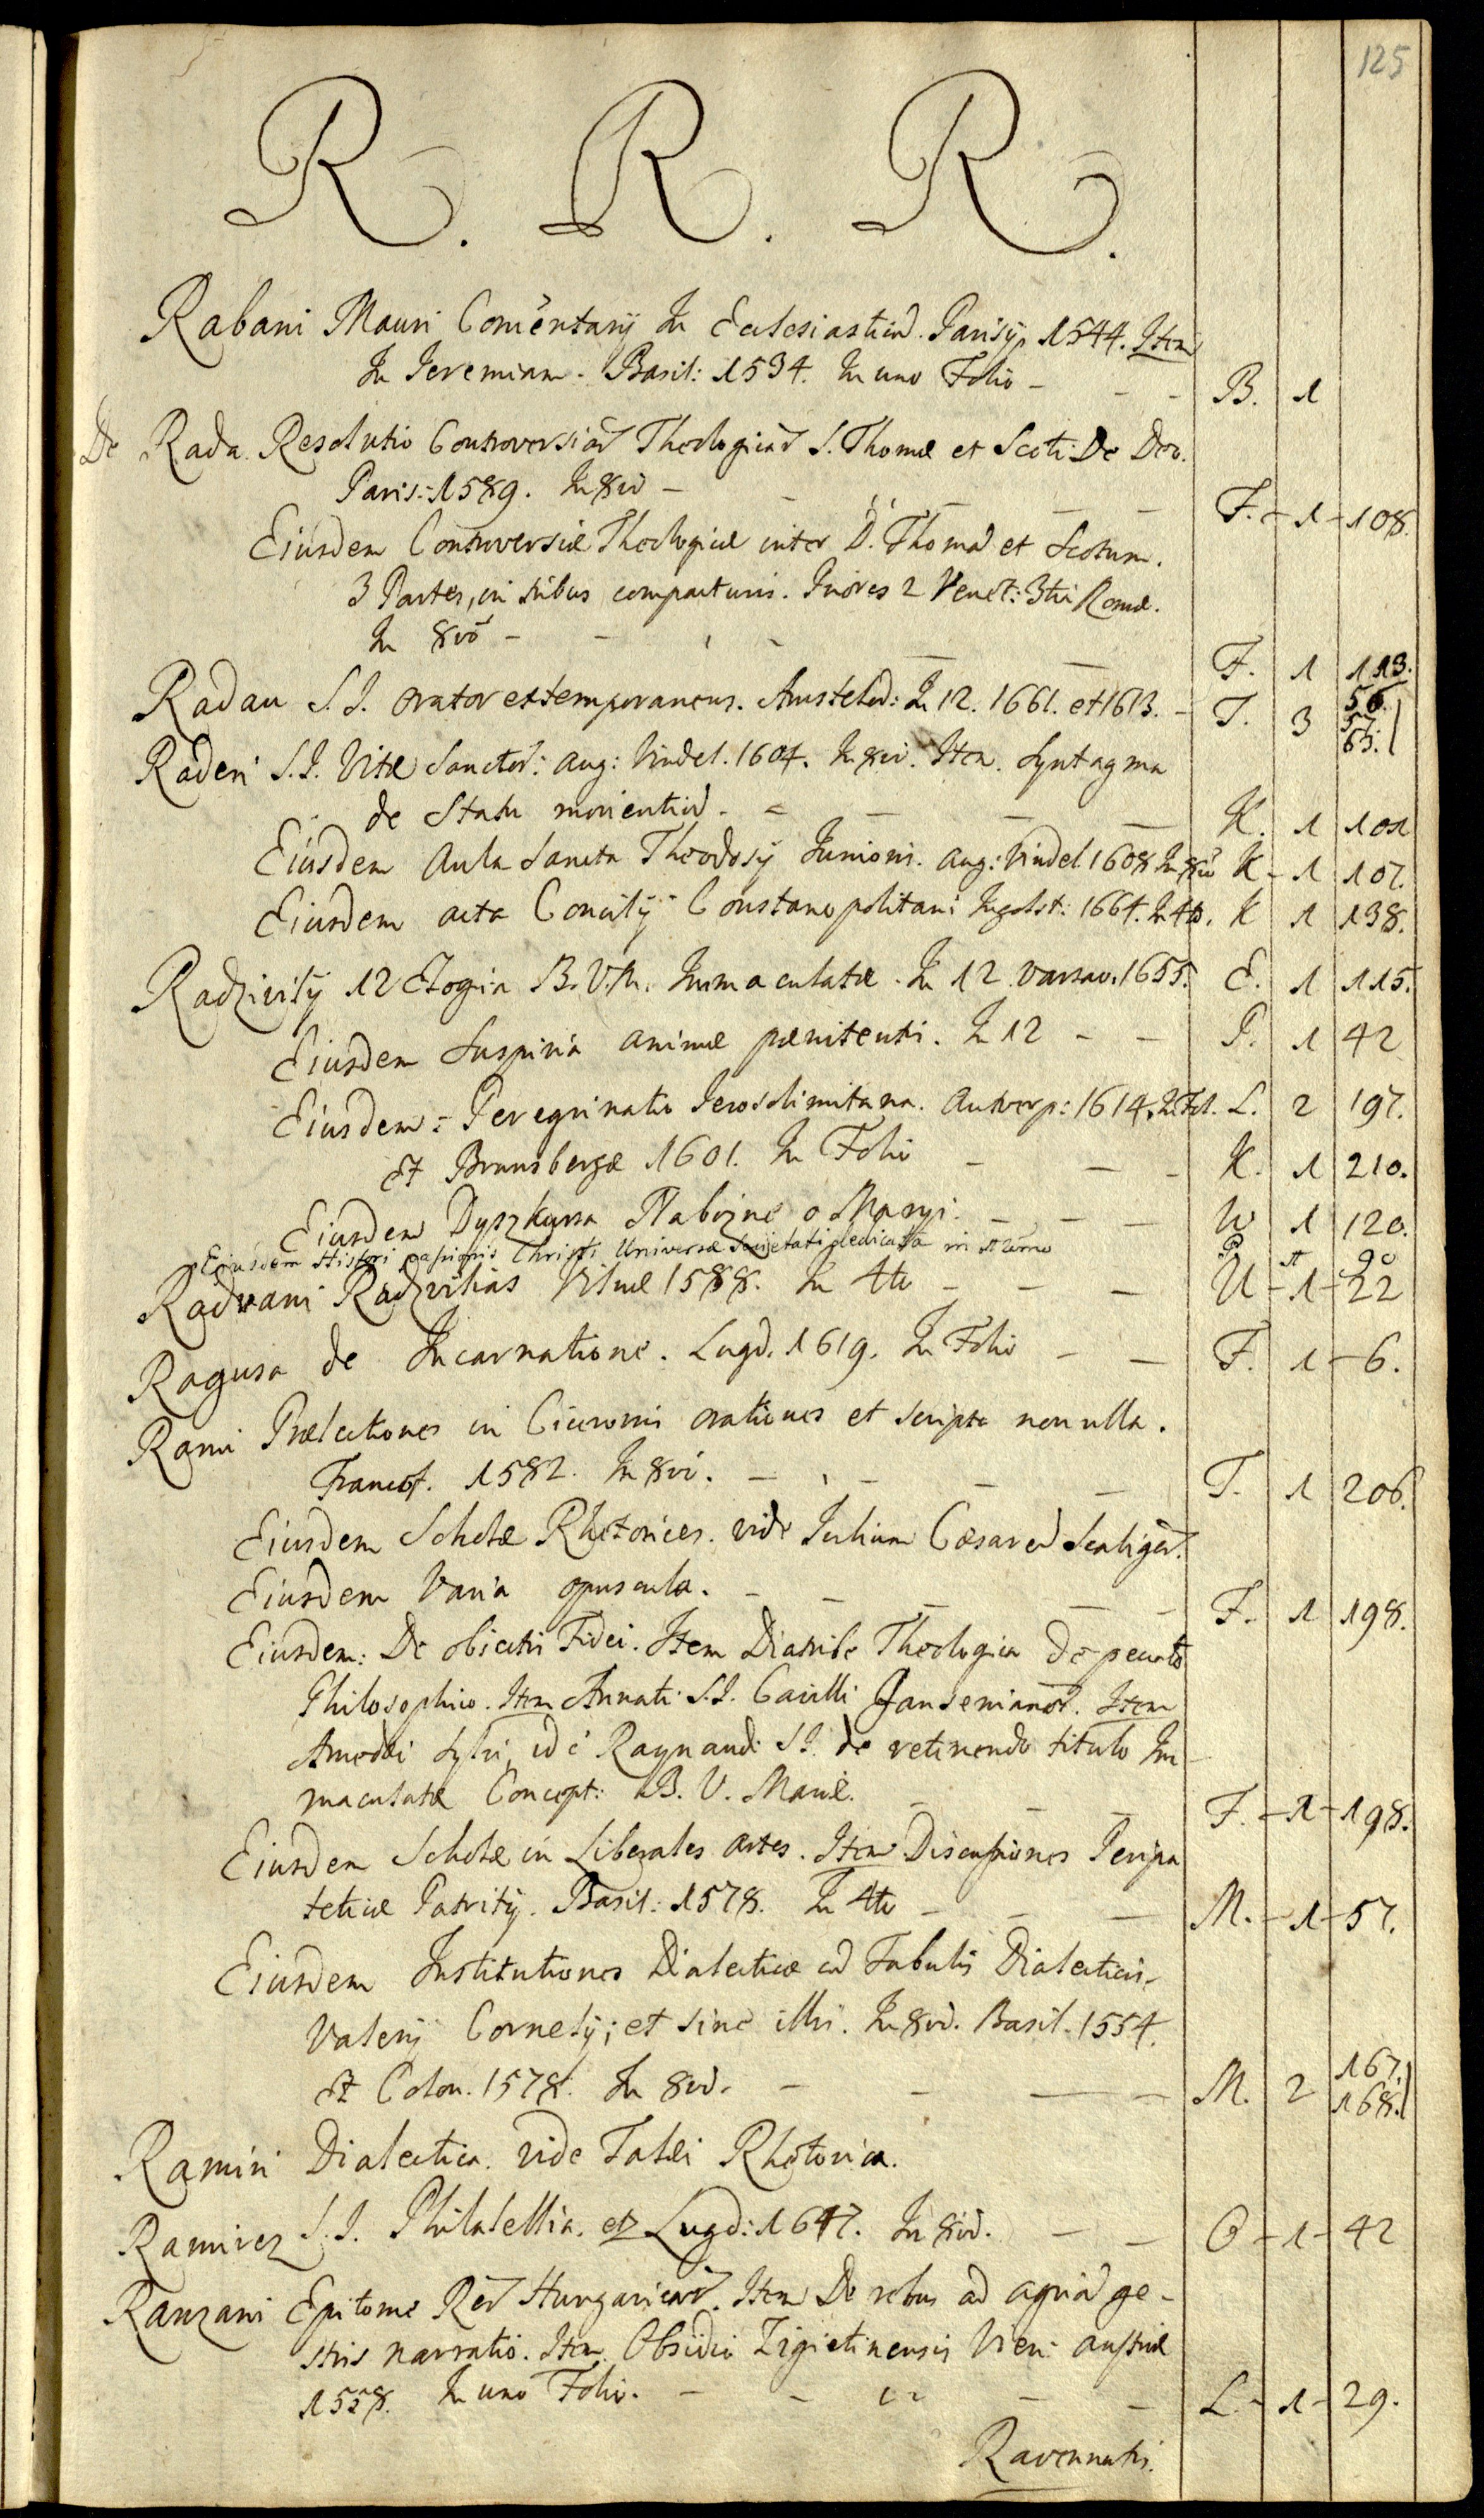 125
R. R. R.
Rabani Mauri Comentarij In Eclesiasticū. Parisijs 1544. Item
In Jeremiam. Basil: 1534. In uno Folio - - - B. 1
De Rada Resolutio Controversiar̄ Theologicar̄ S. Thomæ et Scoti De Deo.
Paris: 1589. In 8vo - - - - - F. - 1 - 108.
Eiusdem Controversiæ Theologicæ inter D. Thomā et Scotum.
3 Partes, in tribus compacturis. Priores 2 Venet: 3tia Romæ.
In 8vo - - - - - F. 1 113.
Radau S.J. Orator extemporaneus. Amstelod: In 12. 1661. et 1613. - T. 3 56. 57. 63.
Raderi S.J. Vitæ Sanctor̄: Aug: Vindel. 1604. In 8vo. Item. Syntagma
de Statu morientiū. - - - - K. 1 101
Eiusdem Aula Sancta Theodosij Junioris. Aug: Vindel. 1608 In 8vo K - 1 107.
Eiusdem acta Concilij Constanopolitani Ingolst: 1664. In 4to. K 1 138.
Radzivilij 12 Elogia B.V.M. Immaculatæ. In 12. Varsav. 1655. E. 1 115.
Eiusdem Suspiria animæ pænitentis. In 12 - - P. 1 42
Eiusdem: Peregrinatio Jerosolimitana. Antverp: 1614. In Fol. L. 2 197.
Et Brunsbergæ 1601. In Folio - - - K. 1 210.
Eiusdem Dyszkursa Nabożne o Maryi. - - - W 1 120.
Eiusdem Histori passionis Christi Universæ Societati dedicata in 12mo P 1 90
Radvani Radzivilias Vilnæ 1588. In 4to - - - U - 1 - 22
Ragusa de Incarnatione. Lugd. 1619. In Folio - - F. 1 - 6.
Rami Prælectiones in Ciceronis orationes et scripta nonnulla.
Francof. 1582. In 8vo. - - - - T. 1 206.
Eiusdem Scholæ Rhetorices. vide Julium Cæsarem Scaliger̄.
Eiusdem Varia opuscula. - - - - - F. 1 198.
Eiusdem: De obiecti Fidei. Item Diatribe Theologica de peccato
Philosophico. Item Annati S.J. Cavilli Jansenianor̄. Item
Amedæi Sylvi, id ē Raynaudi S.J. de retinendo titulo Im
maculatæ Concept: B. V. Mariæ. - - - F. - 1 - 198.
Eiusdem Scholæ in Liberales artes. Item Discussiones Peripa
teticæ Patritij. Basil: 1578. In 4to - - - M. - 1 - 57.
Eiusdem Institutiones Dialecticæ cū Tabulis Dialecticis
Valerij Cornelij; et sine illis. In 8vo. Basil. 1554.
Et Colon. 1578. In 8vo. - - - - M. 2 167. 168.
Ramiri Dialectica. vide Talæi Rhetorica.
Ramirez S.J. Lugd: 1647. In 8vo. - - O - 1 - 42
Ranzani Epitome Rer̄ Hungaricar̄. Item De rebus ad agriā ge-
stis narratio. Item. Obsidio Zigietinensis Vien: austriæ
1558. In uno Folio. - - - - - L. - 1 - 29.
Ravennatis.